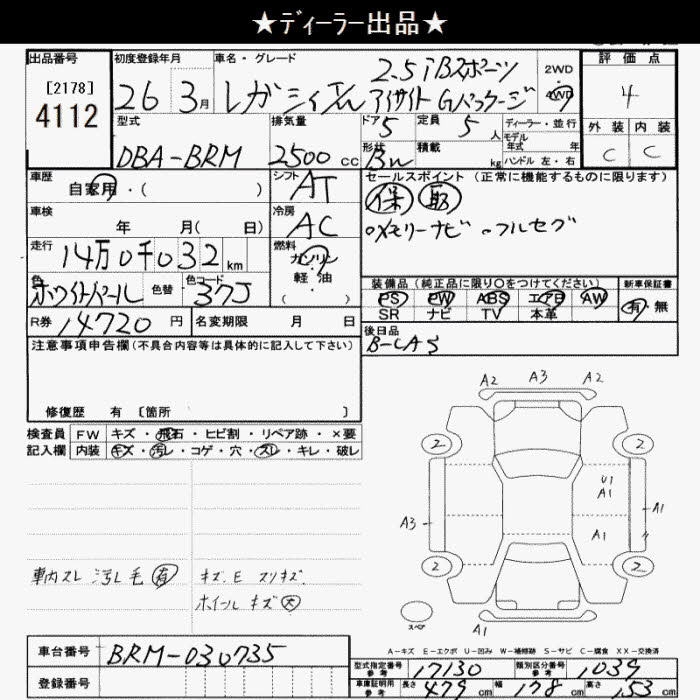 ★ディーラー出品★
出品番号 初度登録年月 車名・グレード 評価点
[2178]
4112
26 3月 レガシィ 2.5iBスポーツ
アイサイト Gパッケージ
2WD
4WD
4
外装 内装
C C
型式 排気量 ドア 定員 ディーラー・並行
DBA-BRM 2500cc 5 5人
モデル年式 年
形状 積載 kg ハンドル 左・右
車歴 シフト セールスポイント (正常に機能するものに限ります)
自家用・( ) AT 保 取
車検 冷房
年 月( 日) AC メモリーナビ フルセグ
走行 燃料
14万0千032km ガソリン
軽・油
( )
色 色替 色コード
ホワイトパール 37J
装備品(純正品に限り○をつけてください) 新車保証書
PS PW ABS エアB AW 有・無
SR ナビ TV 本革
R券 14720円 名変期限 月 日
後日品
B-CAS
注意事項申告欄(不具合内容等は具体的に記入して下さい)
修復歴 有 [箇所 ]
検査員 FW キズ・飛石・ヒビ割・リペア跡・×要
記入欄 内装 キズ・汚レ・コゲ・穴・スレ・キレ・破レ
A2 A3 A2
2 2
U1
A1
A3 A1
A1
2 2
スペア A1
車内スレ 汚レ 毛 有 キズ.E スリキズ
ホイールキズ 大
A-キズ E-エクボ U-凹み W-補修跡 S-サビ C-腐食 XX-交換済
車台番号 BRM-030735
登録番号
型式指定番号 参考 17130 類別区分番号 参考 1039
車庫証明用 参考 長さ 479cm 幅 178cm 高さ 153cm